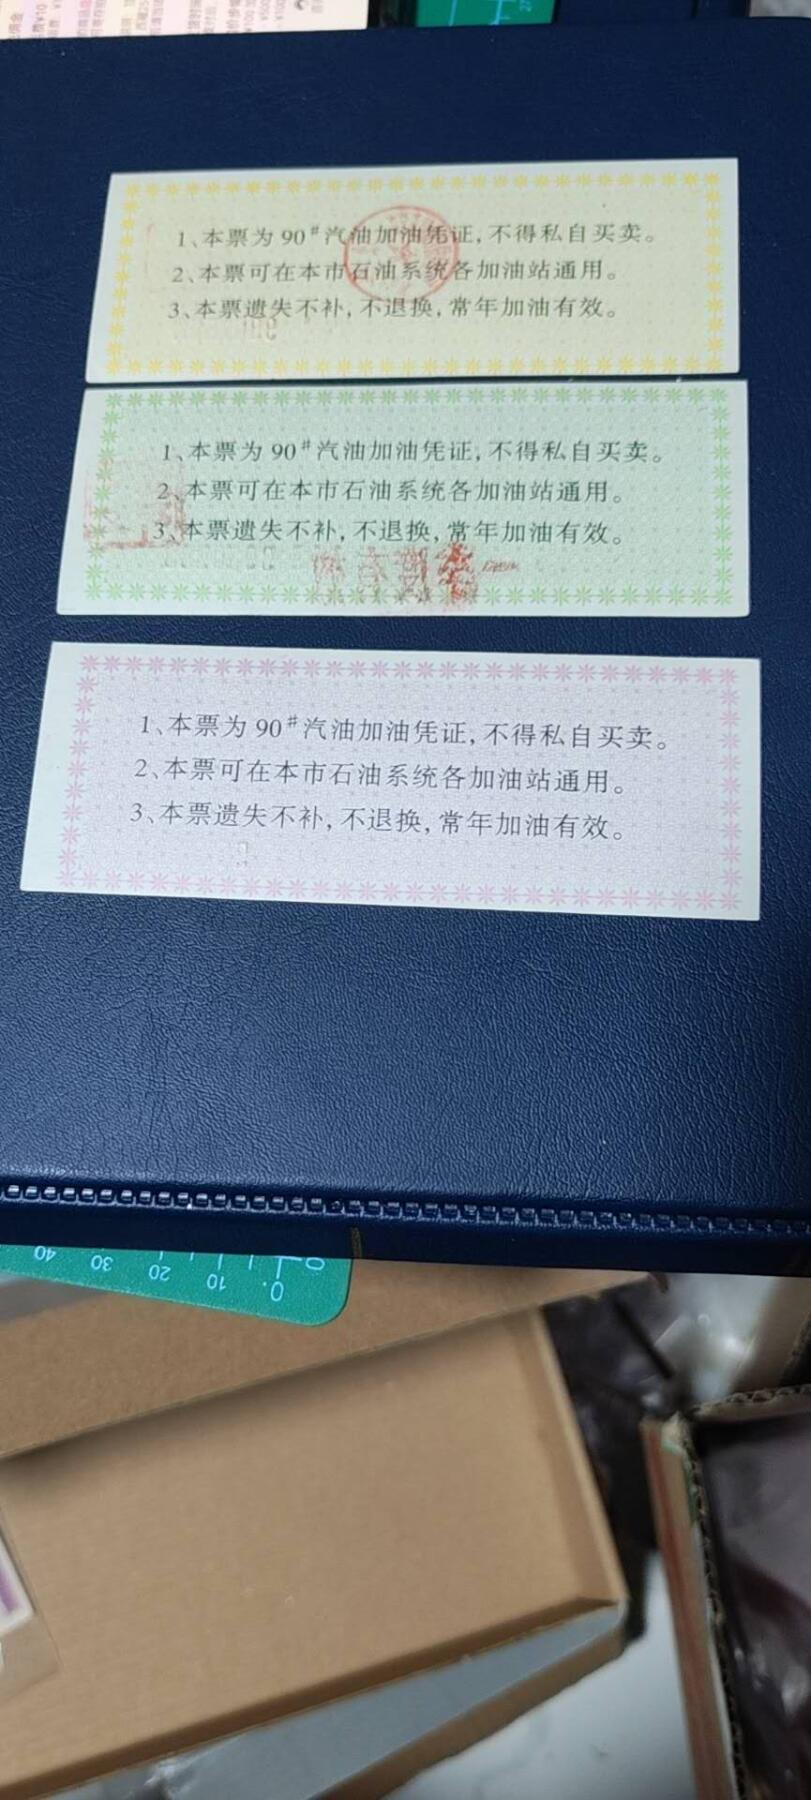 1、本票为90#汽油加油凭证,不得私自买卖。
2、本票可在本市石油系统各加油站通用。
3、本票遗失不补,不退换,常年加油有效。
1、本票为90#汽油加油凭证,不得私自买卖。
2、本票可在本市石油系统各加油站通用。
3、本票遗失不补,不退换,常年加油有效。
1、本票为90#汽油加油凭证,不得私自买卖。
2、本票可在本市石油系统各加油站通用。
3、本票遗失不补,不退换,常年加油有效。
40 30 20 10 0 0